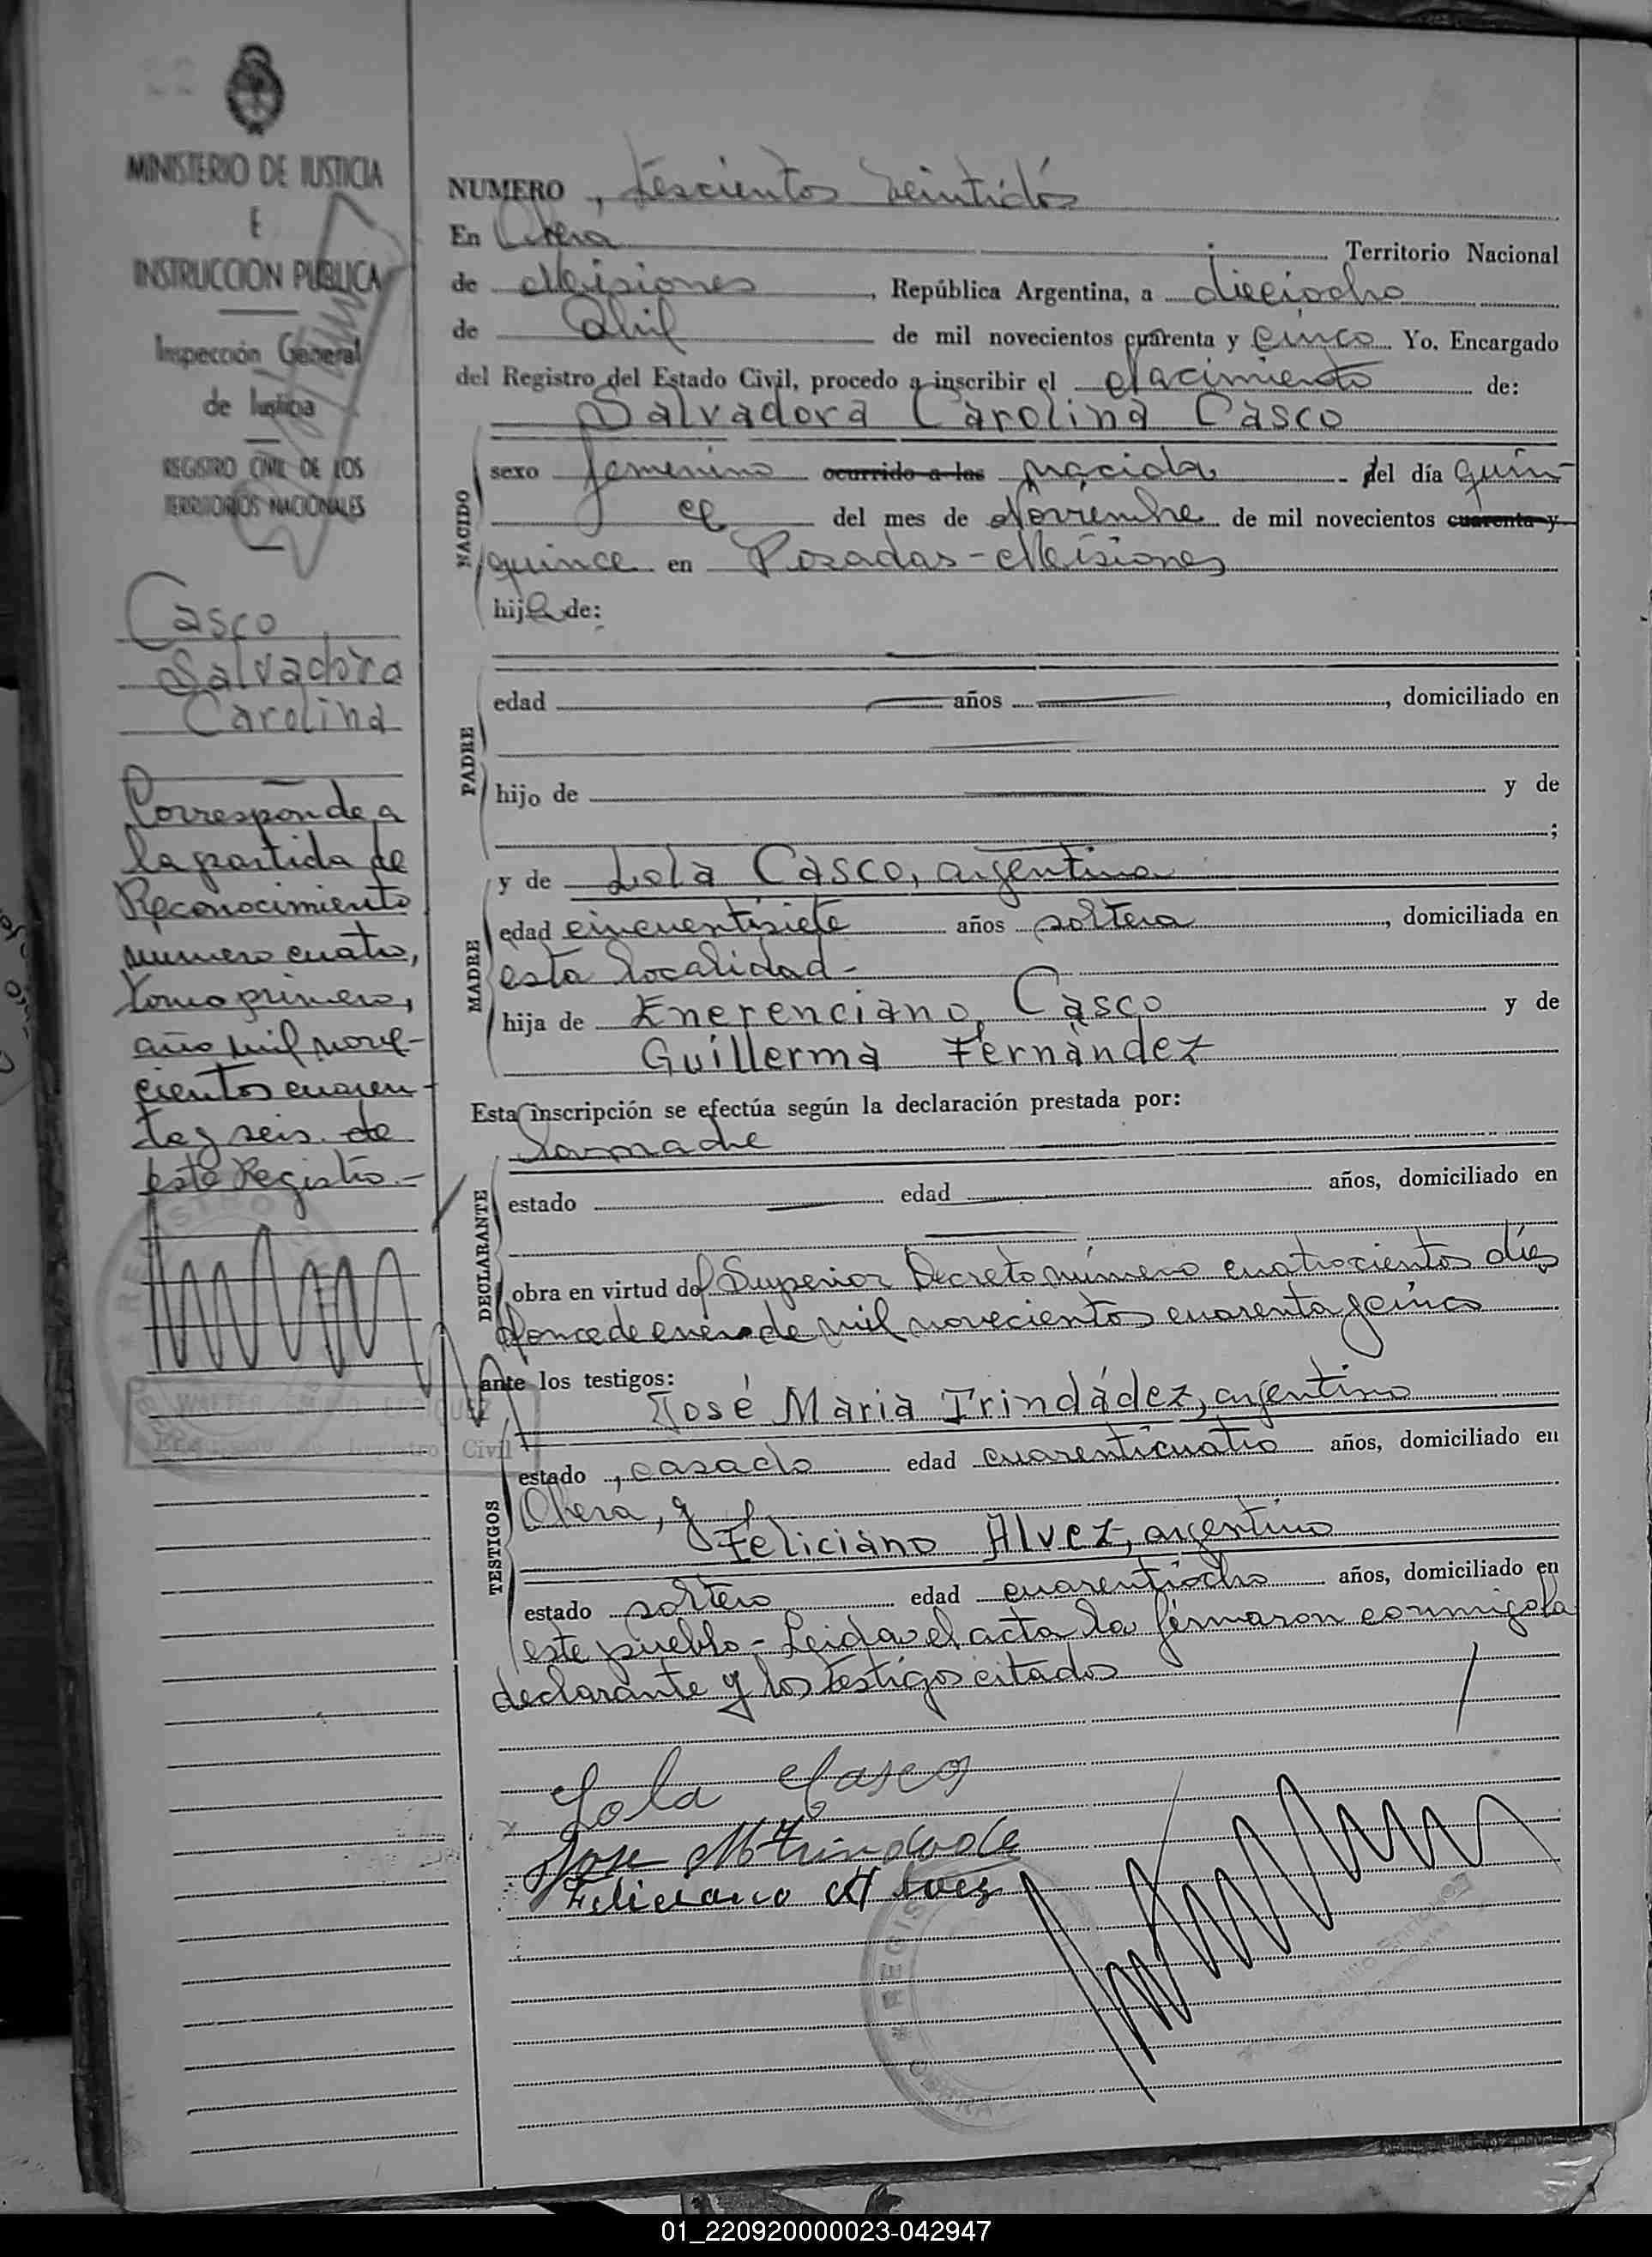 MINISTERIO DE JUSTICIA
E
INSTRUCCION PUBLICA
Inspección General
de Justicia
REGISTRO CIVIL DE LOS
TERRITORIOS NACIONALES
Casco
Salvadora
Carolina
Corresponde a
la partida de
Reconocimiento
numero cuatro,
tomo primero,
año mil nove-
cientos cuaren-
ta y seis de
este Registro.-
NUMERO, Trescientos veintidós
En Obera Territorio Nacional
de Misiones, República Argentina, a dieciocho
de Abril de mil novecientos cuarenta y cinco Yo. Encargado
del Registro del Estado Civil, procedo a inscribir el Nacimiento de:
Salvadora Carolina Casco
NACIDO
sexo femenino ocurrido a las nacida del día quin-
ce del mes de Noviembre de mil novecientos cuarenta y
quince en Posadas - Misiones
hija de:
PADRE
edad años, domiciliado en
hijo de y de
;
MADRE
y de Lola Casco, argentina
edad cincuentisiete años soltera, domiciliada en
esta localidad -
hija de Enerenciano Casco y de
Guillerma Fernández
Esta inscripción se efectúa según la declaración prestada por:
la madre
DECLARANTE
estado edad años, domiciliado en
obra en virtud del Superior Decreto número cuatrocientos diez
/once de enero de mil novecientos cuarenta y cinco
ante los testigos:
TESTIGOS
José Maria Trindádez, argentino
estado, casado edad cuarenticuatro años, domiciliado en
Obera, y
Feliciano Alvez, argentino
estado soltero edad cuarentiocho años, domiciliado en
este pueblo - Leida el acta la firmaron conmigo la
declarante y los testigos citados
Lola Casco
Jose M Trindade
Feliciano Alvez
REGIS
01_220920000023-042947